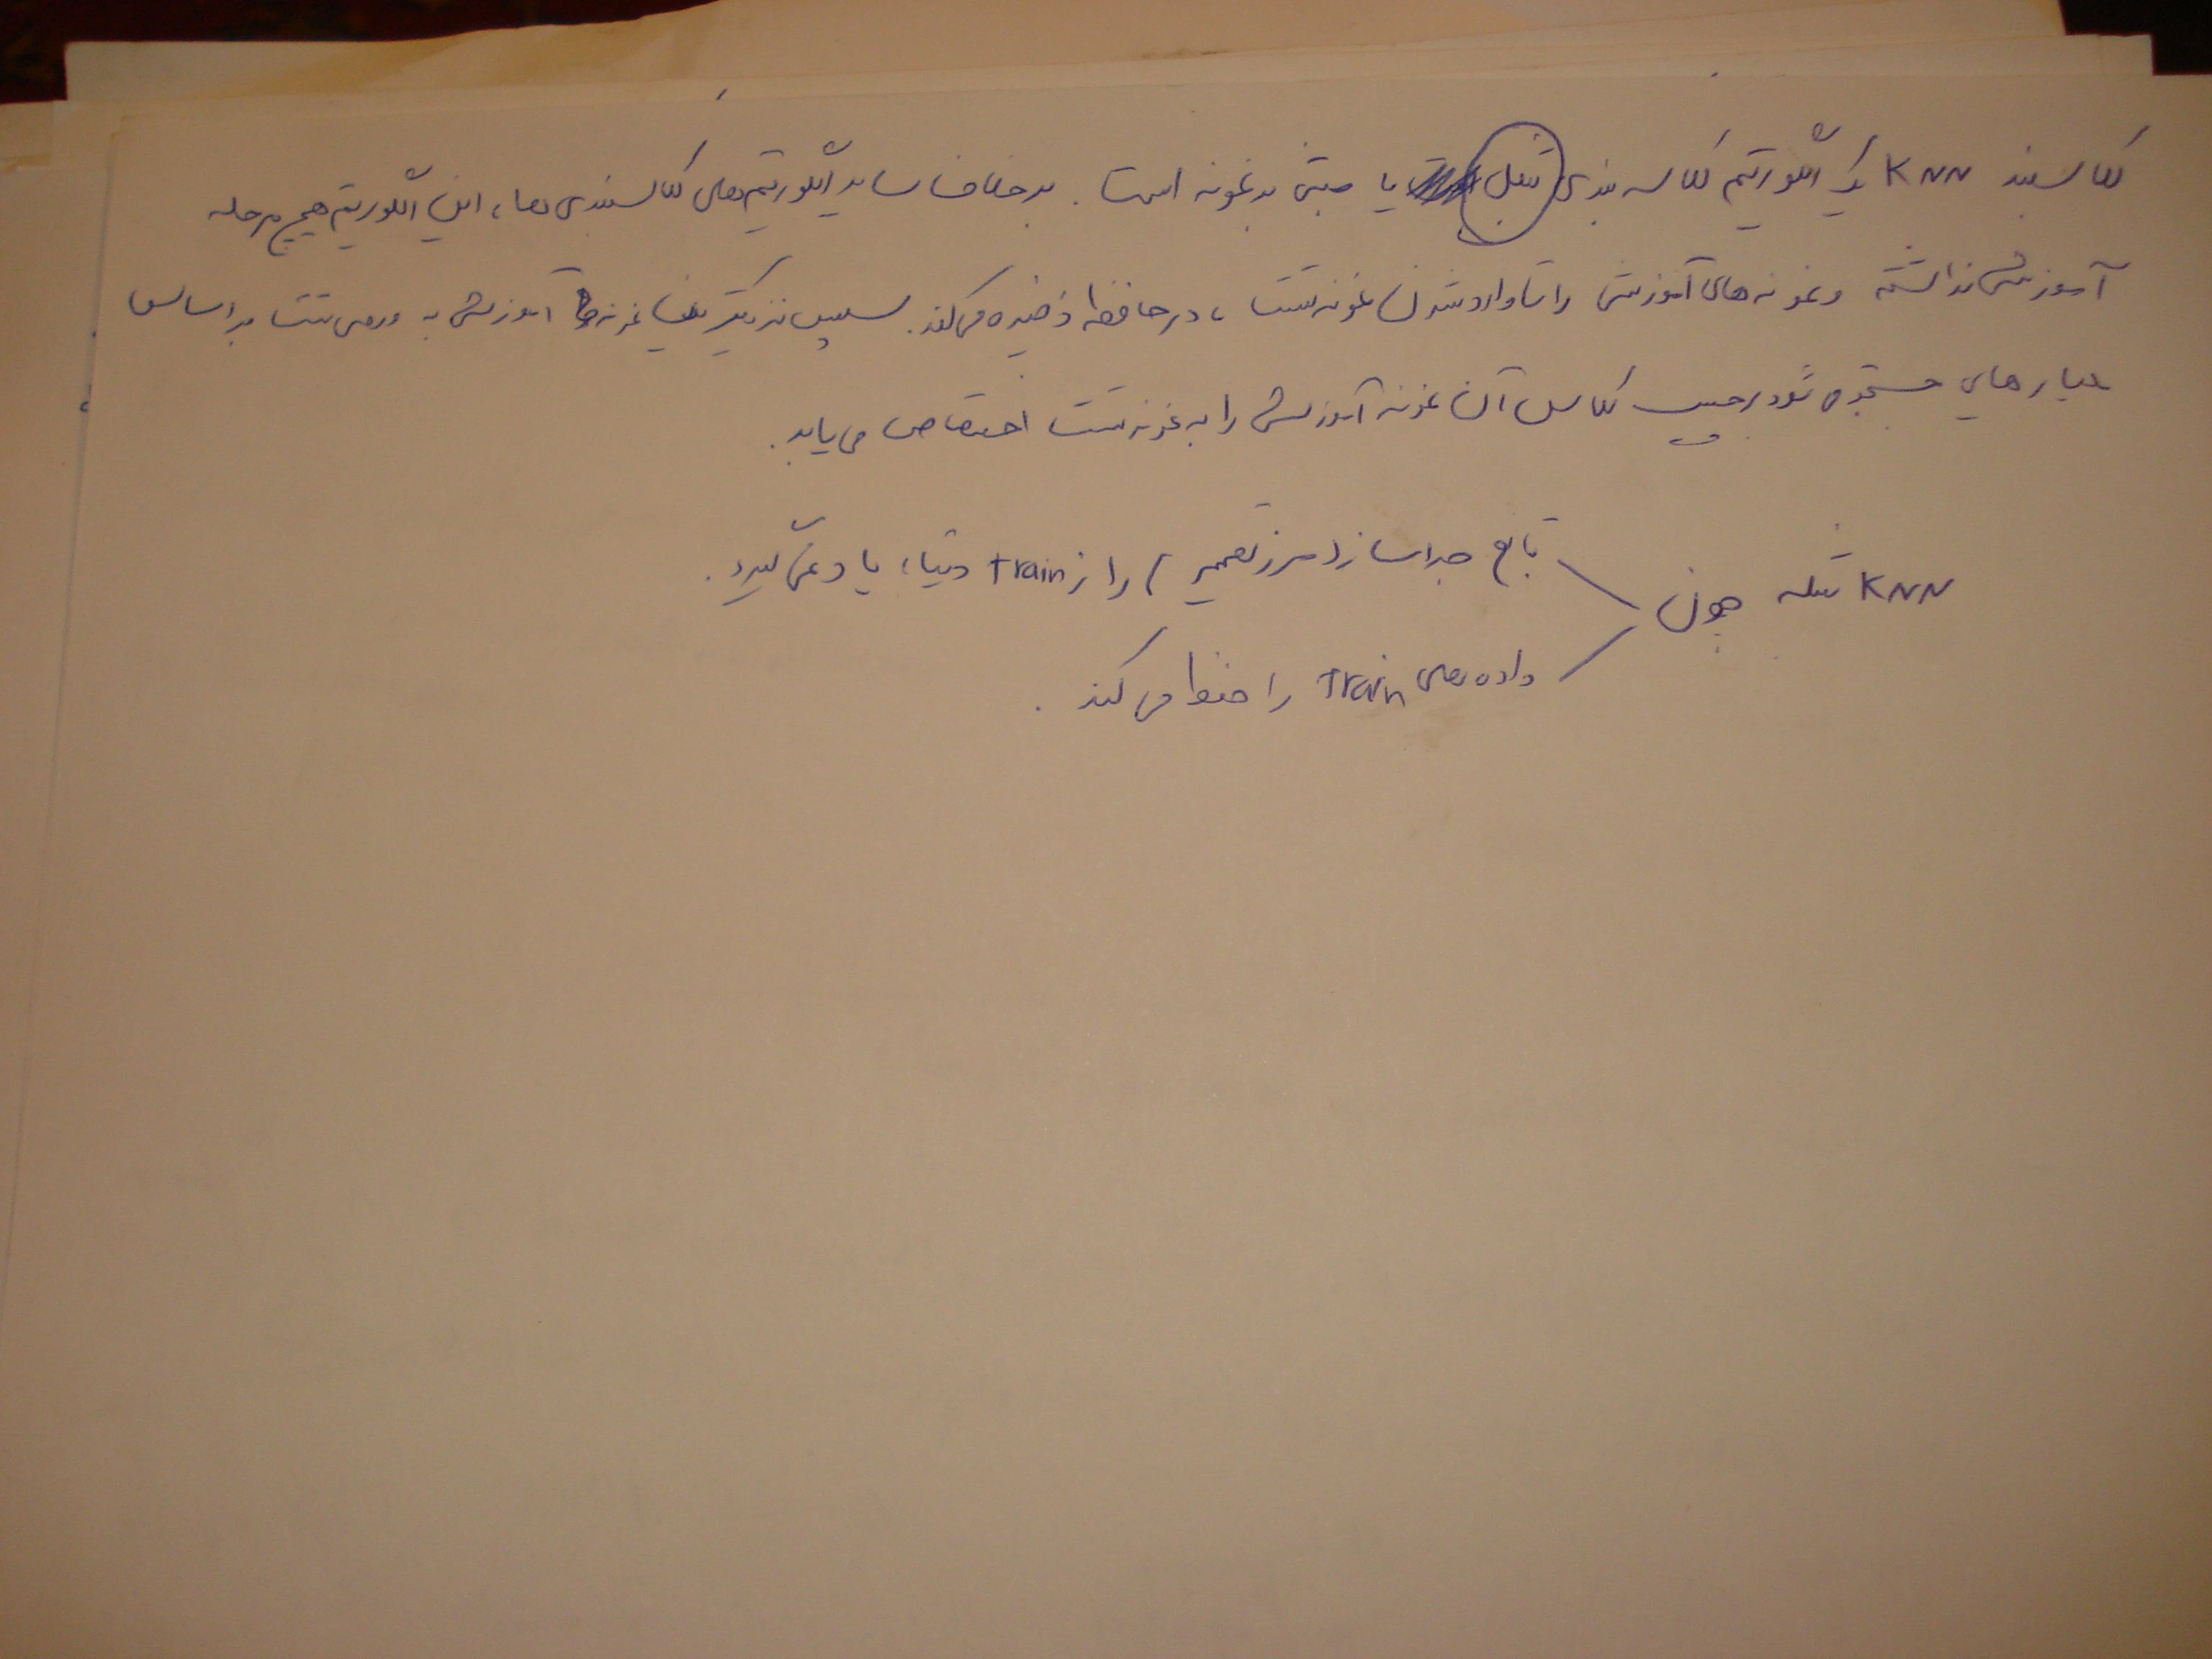 کلاسبند KNN یک الگوریتم کلاسه بندی تنبل یا مبتنی بر نمونه است. برخلاف سایر الگوریتم‌های کلاسبندی‌ها، این الگوریتم هیچ مرحله
آموزشی نداشته و نمونه های آموزشی را تا وارد شدن نمونه تست، در حافظه ذخیره می‌کند. سپس نزدیکترین نمونه‌ها آموزشی به ورودی تست بر اساس
معیارهایی جستجو می شود برچسب کلاس آن نمونه آموزشی را به نمونه تست اختصاص می‌یابد.
KNN تنبله چون
تابع جداساز (مرز تصمیم) را از Train دیتا، یاد نمی‌گیرد.
داده‌های Train را حفظ می‌کند.